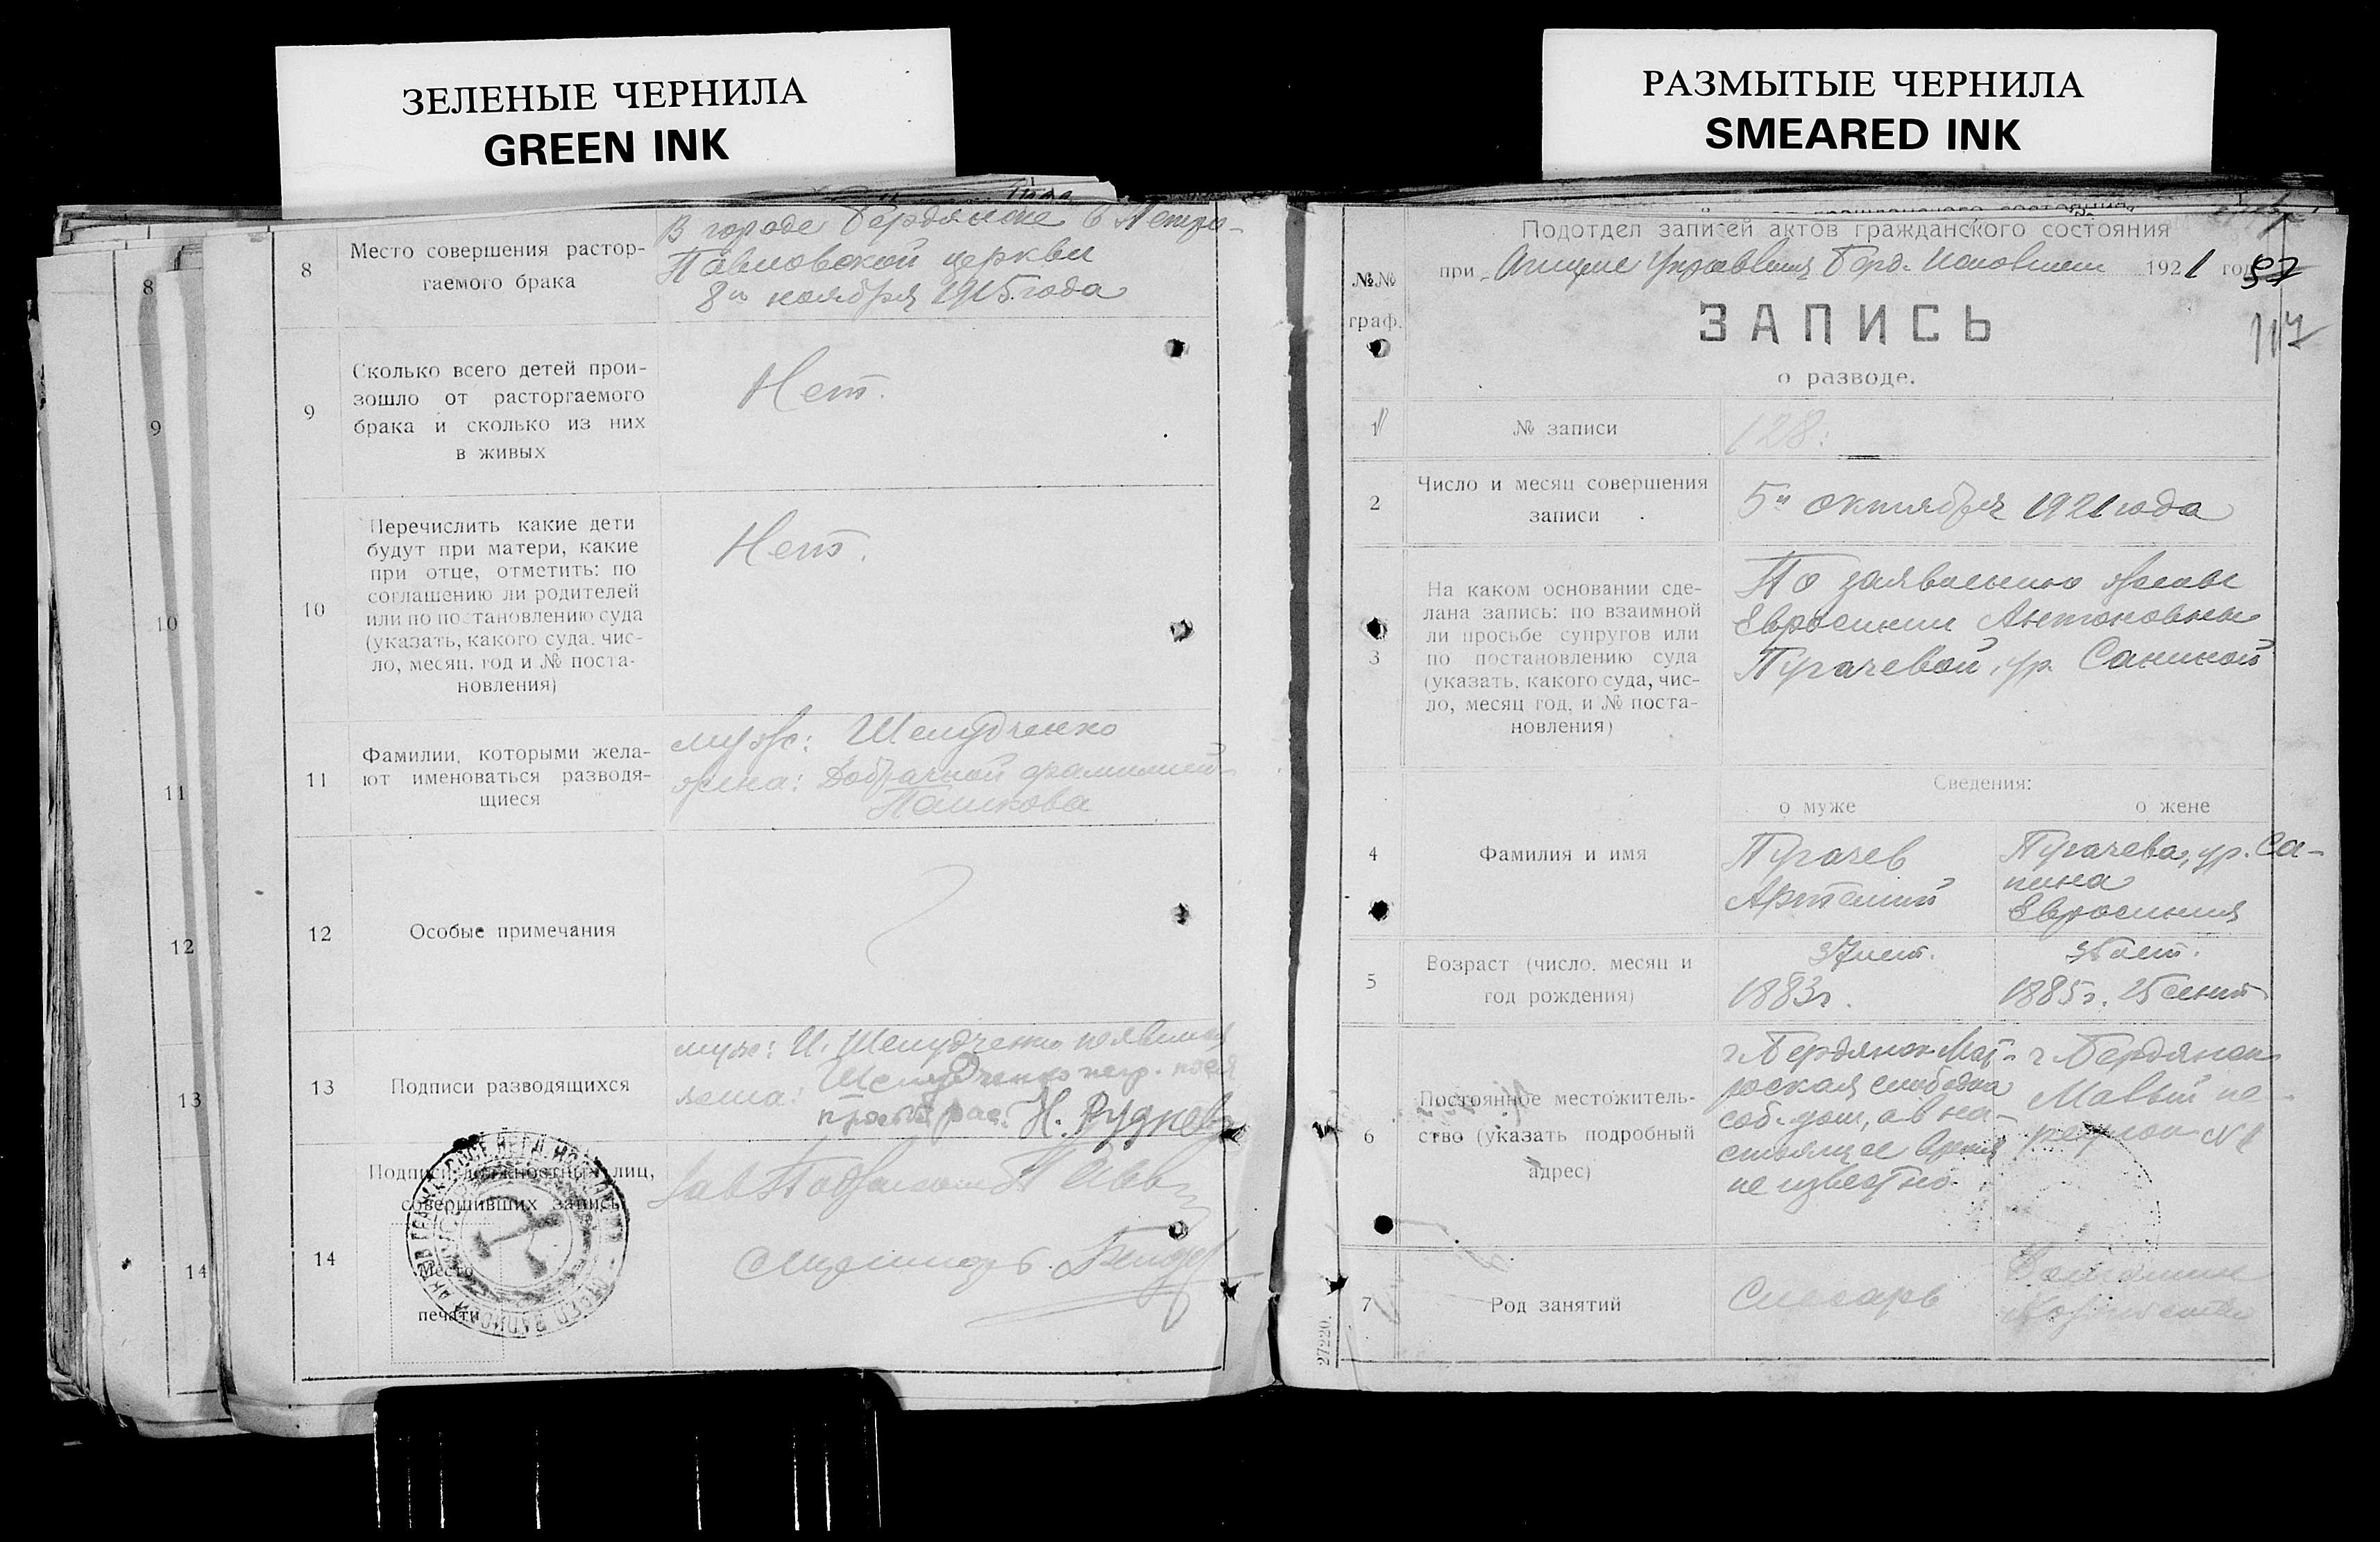 ЗЕЛЕНЫЕ ЧЕРНИЛА
GREEN INK
РАЗМЫТЫЕ ЧЕРНИЛА
SMEARED INK
8
9
10
11
12
13
14
8
Место совершения растор-
гаемого брака
В городе Бердянске в Петро-
Павловской церкви
8го ноября 1915 года
9
Сколько всего детей прои-
зошло от расторгаемого
брака и сколько из них
в живых
Нет.
10
Перечислить какие дети
будут при матери, какие
при отце, отметить: по
соглашению ли родителей
или по постановлению суда
(указать, какого суда, чис-
ло, месяц, год и № поста-
новления)
Нет.
11
Фамилии, которыми жела-
ют именоваться разводя-
щиеся
муж: Шелудченко
жена: Добрачной фамилией
Пашкова
12
Особые примечания
13
Подписи разводящихся
муж: И. Шелудченко
Шелудченко
Н. Руднев
14
Подписи должностных лиц,
совершивших запись
Место
печати
Подотдел записей актов гражданского состояния
при Отделе Управления Берд. 1921 год
57
117
№№
граф.
ЗАПИСЬ
о разводе.
1
№ записи
128.
2
Число и месяц совершения
записи
5го октября 1921 года
3
На каком основании сде-
лана запись: по взаимной
ли просьбе супругов или
по постановлению суда
(указать, какого суда, чис-
ло, месяц год, и № поста-
новления)
По заявлению жены
Евросинии Антоновны
Пугачевой, ур. Саниной
Сведения:
о муже
о жене
4
Фамилия и имя
Пугачев
Артемий
Пугачева, ур. Са-
нина
Евросиния
5
Возраст (число, месяц и
год рождения)
37 лет.
1883г.
лет.
1885г. 25 сент
6
Постоянное местожитель-
ство (указать подробный
адрес)
г. Бердянск Мат-
роская слободка
соб. дом, а в на-
стоящее время
не известно
г. Бердянск
Малый пе-
реулок №
7
Род занятий
Слесарь
Домашнее
27220.